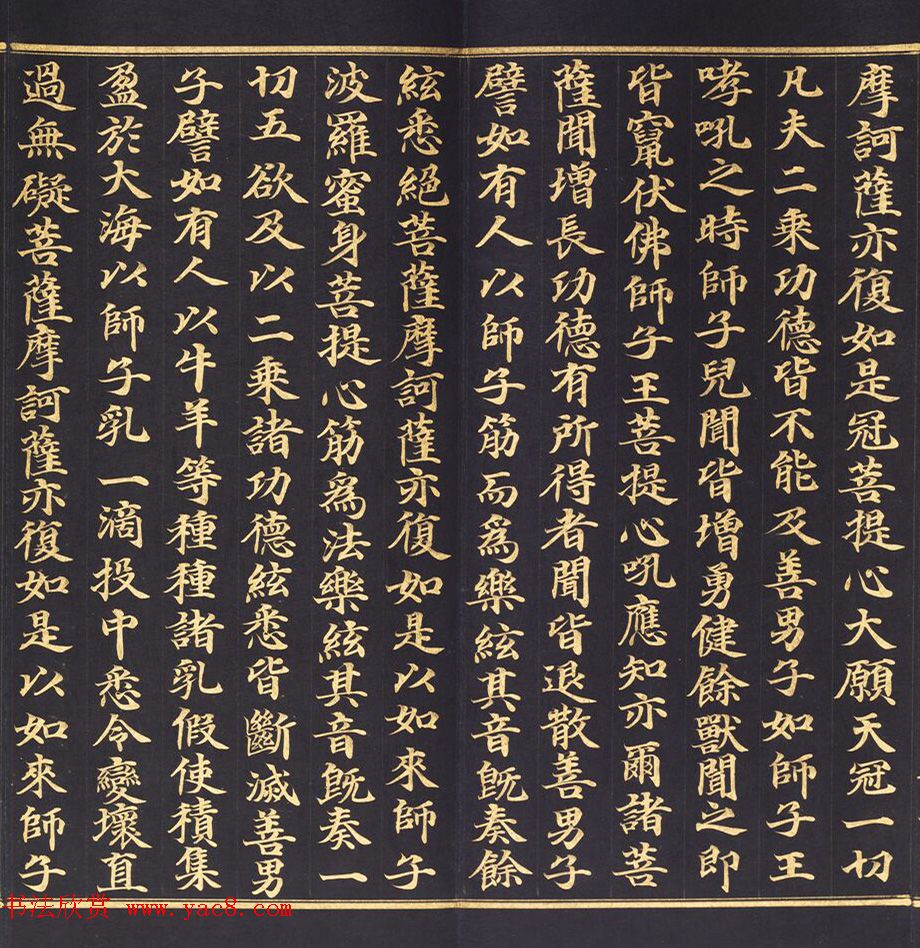 摩訶薩亦復如是冠菩提心大願天冠一切
凡夫二乘功德皆不能及善男子如師子王
哮吼之時師子兒聞皆增勇健餘獸聞之即
皆竄伏佛師子王菩提心吼應知亦爾諸菩
薩聞增長功德有所得者聞皆退散善男子
譬如有人以師子筋而為樂絃其音既奏餘
絃悉絕菩薩摩訶薩亦復如是以如來師子
波羅蜜身菩提心筋為法樂絃其音既奏一
切五欲及以二乘諸功德絃悉皆斷滅善男
子譬如有人以牛羊等種種諸乳假使積集
盈於大海以師子乳一滴投中悉令變壞直
過無礙菩薩摩訶薩亦復如是以如來師子
书法欣赏 www.yac8.com